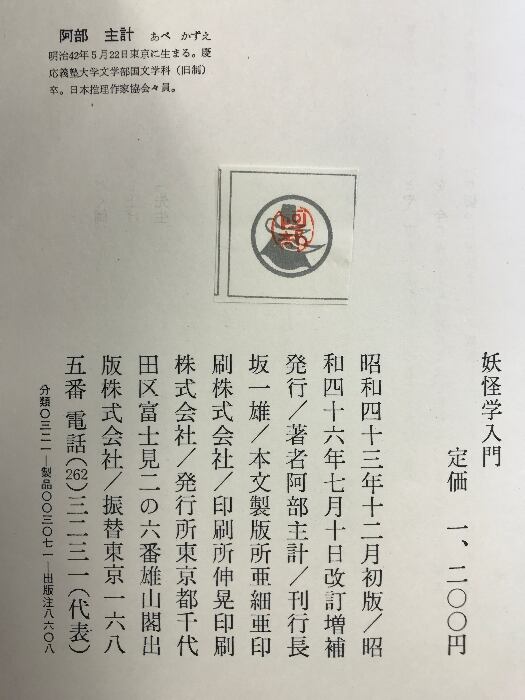 阿部　主計　あべ　かずえ
明治42年5月22日東京に生まる。慶
応義塾大学文学部国文学科（旧制）
卒。日本推理作家協会々員。
阿部
妖怪学入門
定価　一、二〇〇円
昭和四十三年十二月初版／昭
和四十六年七月十日改訂増補
発行／著者阿部主計／刊行長
坂一雄／本文製版所亜細亜印
刷株式会社／印刷所伸晃印刷
株式会社／発行所東京都千代
田区富士見二の六番雄山閣出
版株式会社／振替東京一六八
五番 電話(262)三二三一（代表）
分類〇三二一―製品〇〇三〇七一―出版注八六〇八